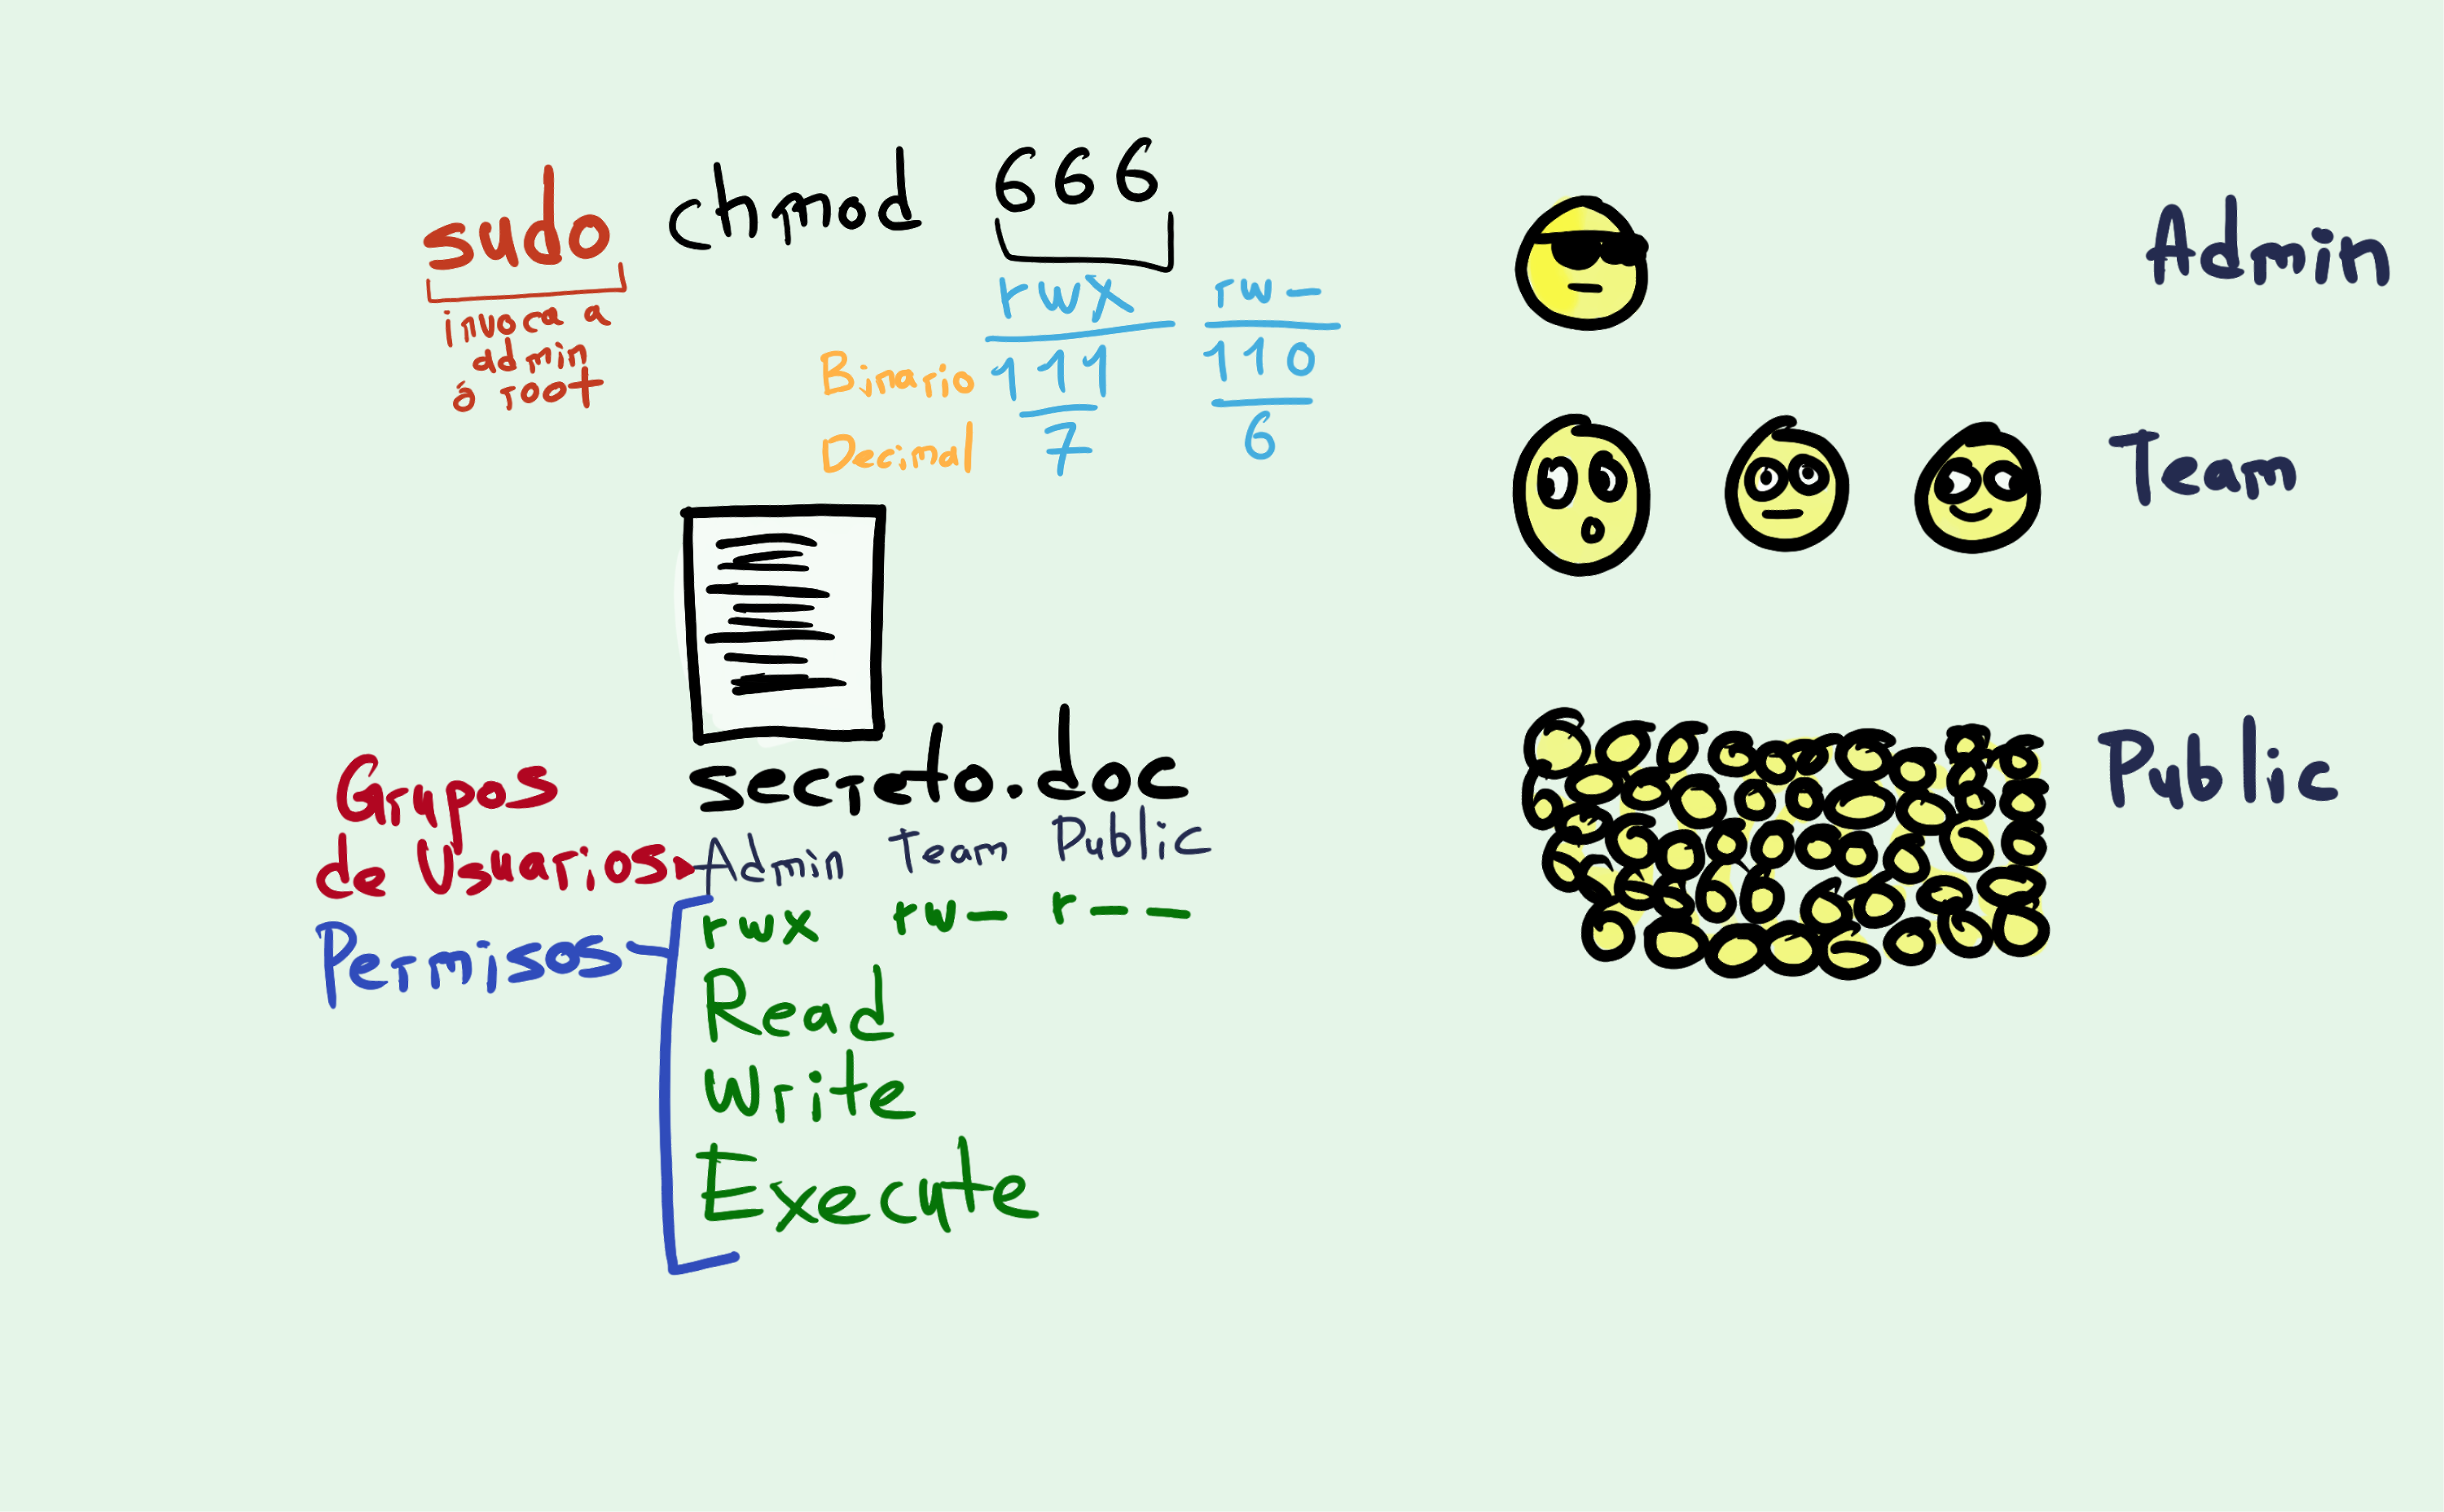 sudo chmod 666
invoca a
admin
ó root
rwx rw-
Binario 111 110
Decimal 7 6
secreto.doc
Grupos
de Usuarios
Admin Team Public
Permisos
rwx rw- r--
Read
Write
Execute
Admin
Team
Public